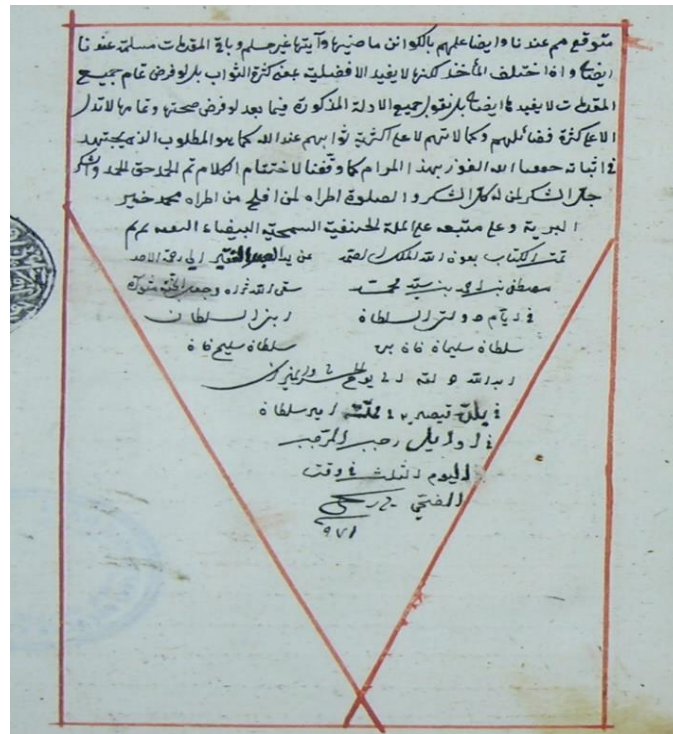 متوقع مم عندنا وايضا علهم بالكوائن ماضيها وآيتها غير مسلم وباقي المقدمات مسلمة عندنا
ايضا وان اختلف المأخذ لكنها لا يفيد الافضلية بمعنى كثرة الثواب بل لو فرض تمام جميع
المقدمات لا يفيدها ايضا بل نقول جميع الادلة المذكورة فيما بعد لو فرض صحتها وتمامها لا تدل
الا على كثرة فضائلهم وكمالاتهم لا على اكثرية ثوابهم عند الله كما هو المطلوب الذي يجتهد
في اثباته الله الفوز بهذا المرام كما وفقنا لاختتام الكلام تم الحمد حق الحمد والشكر
الشكر لمن له كل الشكر والصلوة على من افلح من محمد خير
البرية وعلى متبعه على الملة الحنيفية السمحية البيضاء
تمت الكتاب بعون الله الملك عن يد العبد الفقير الى رحمة الاحد
مصطفى بن بن سيد محمد سقى الله ثراه وجعل الجنة مثواه
في ايام دولة السلطان ابن السلطان
سلطان سليمان خان بن سلطان سليم خان
الله الى يوم
في قيصريه في سلطان
في اوايل رجب المرجب
اليوم الثلث في وقت
الضحى
٩٧١